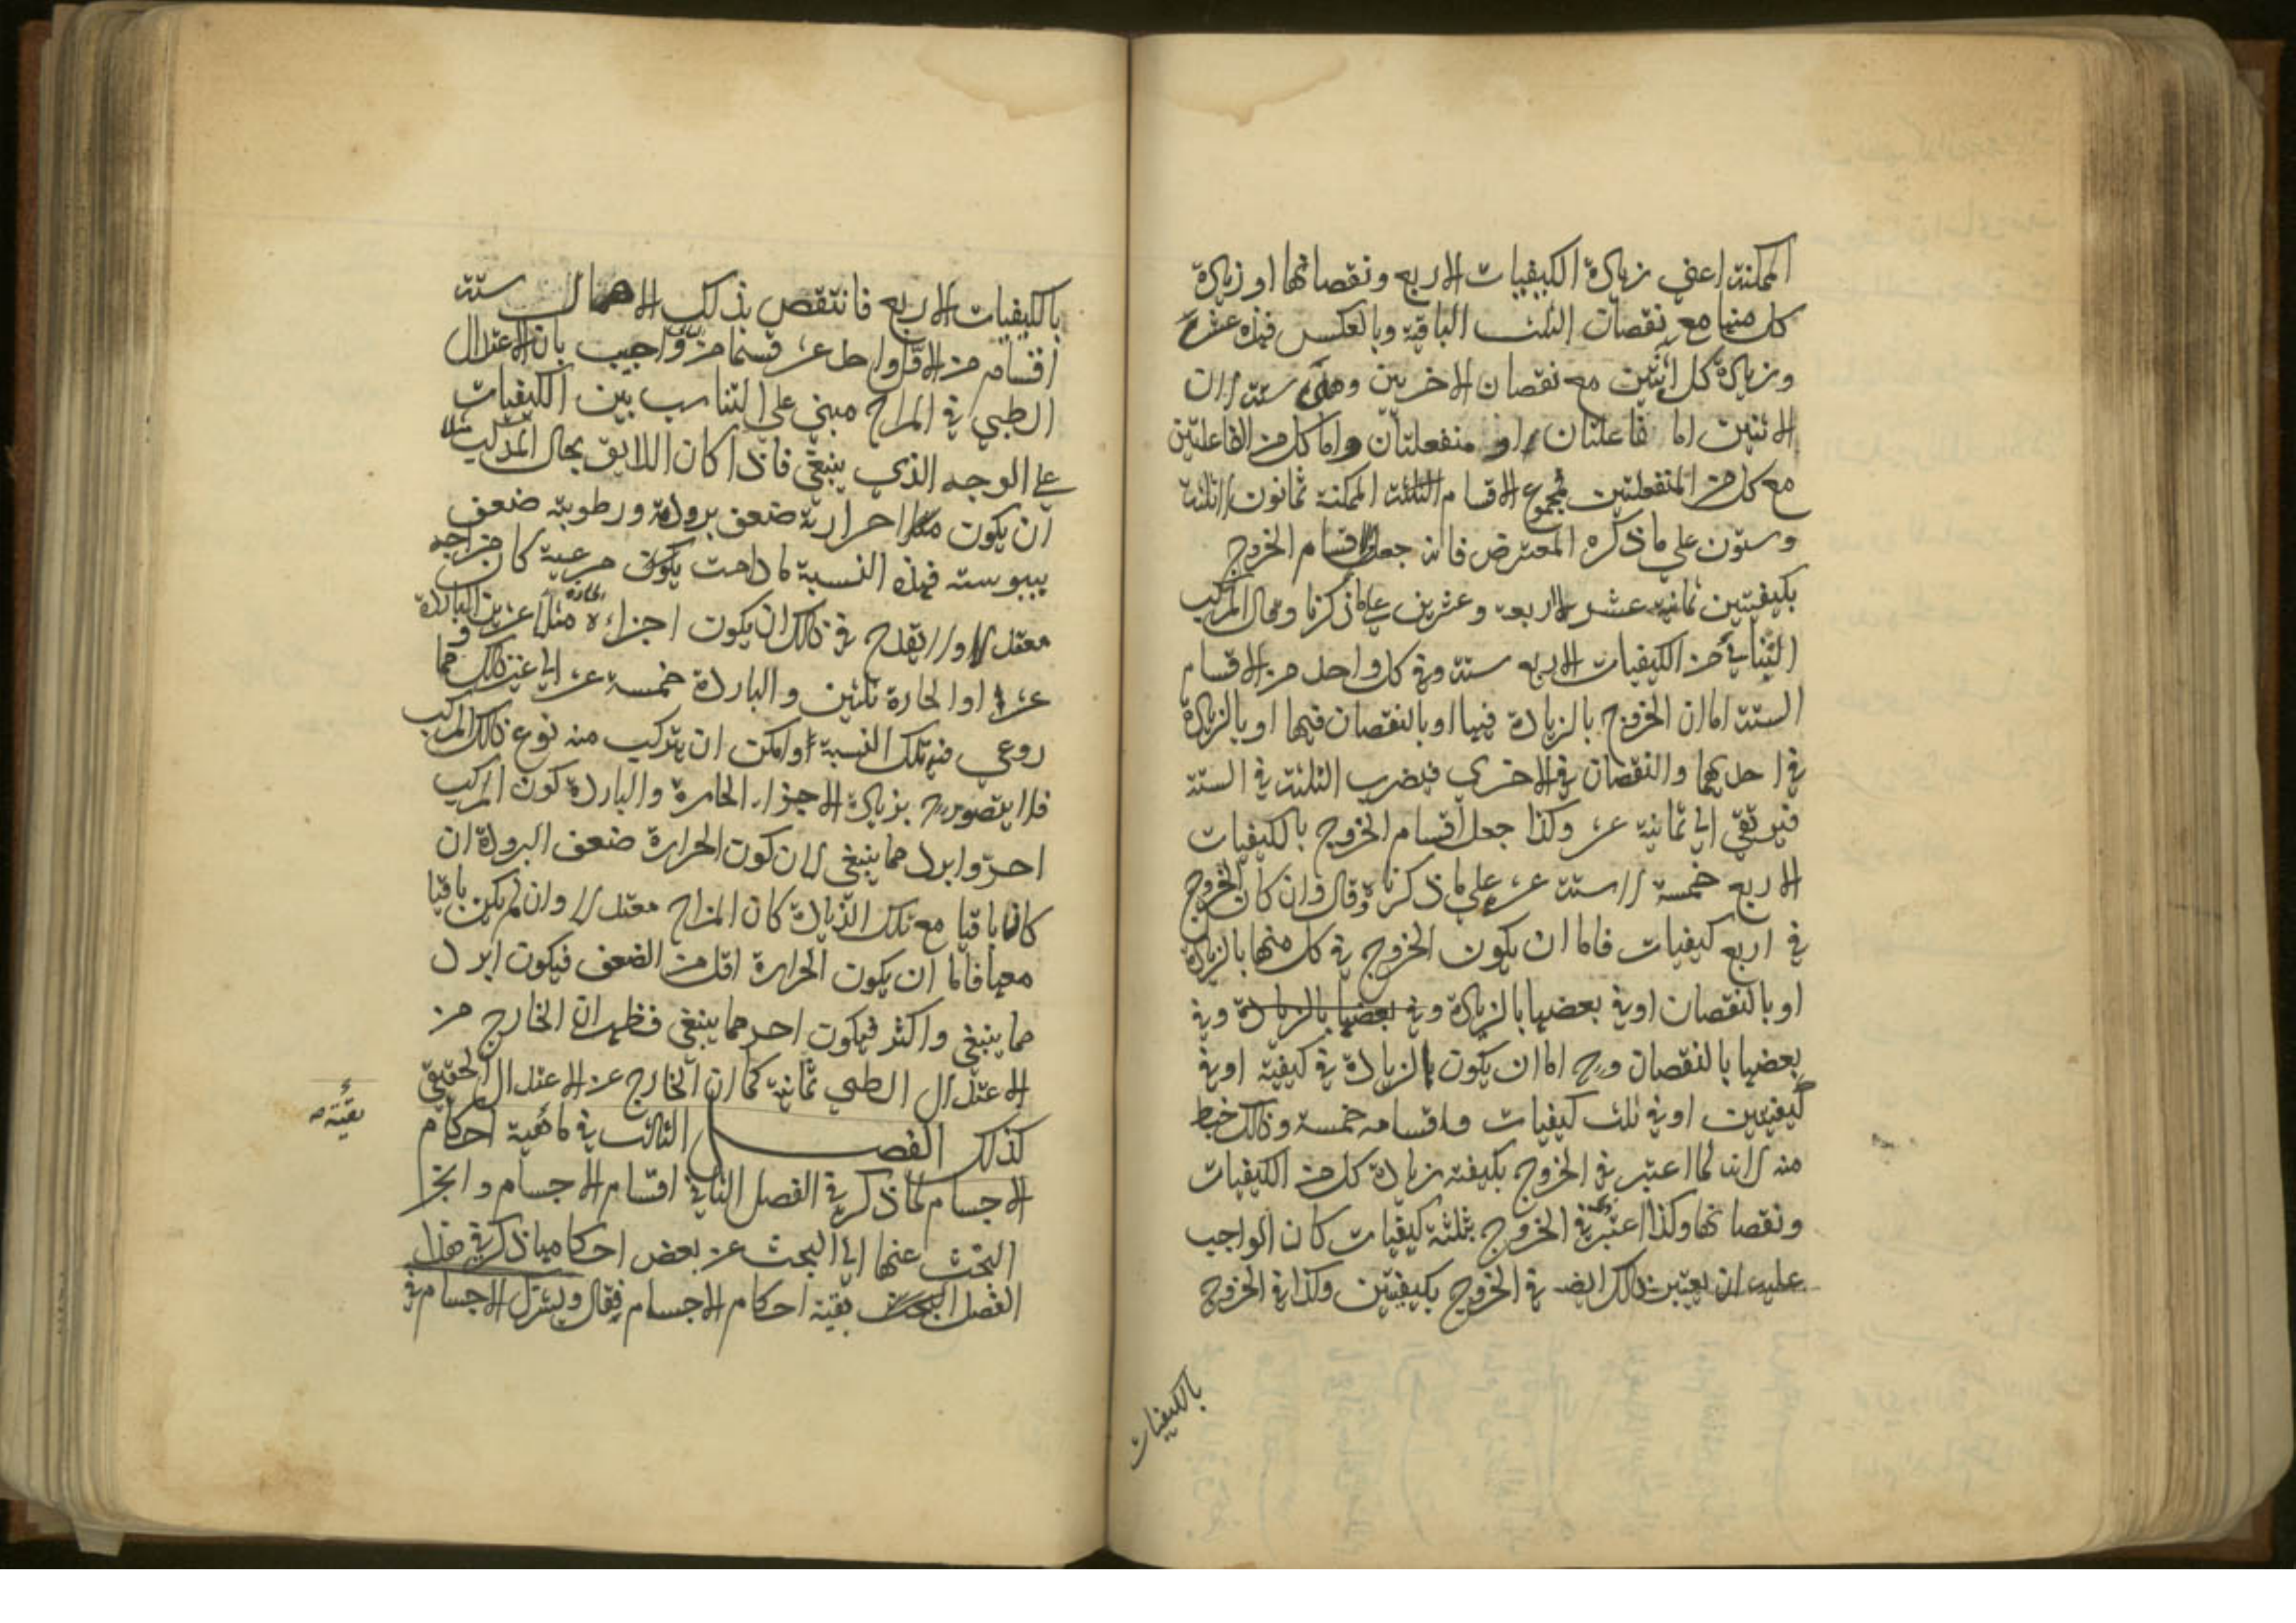 الممكنة اعني زيادة الكيفيات الاربع ونقصانها او زيادة
كل منها مع نقصان الثلث الباقية وبالعكس فهذه عشرة
وزيادة كل اثنتين مع نقصان الاخريين وهي ستة لان
الاثنتين اما فاعلتان او منفعلتان واما كل من الفاعلتين
مع كل من المنفعلتين فمجموع الاقسام الثلثة الممكنة ثمانون لا ثلثة
وستون على ما ذكره المعترض فانه جعل اقسام الخروج
بكيفيتين ثمانية عشر لا اربعة وعشرين على ما ذكرنا وقال المركب
الثنائي من الكيفيات الاربع ستة وفي كل واحد من الاقسام
الستة اما ان الخروج بالزيادة فيها او بالنقصان فيها او بالزيادة
في احديهما والنقصان في الاخرى فيضرب الثلثة في الستة
فيرتقي الى ثمانية عشر وكذا جعل اقسام الخروج بالكيفيات
الاربع خمسة لا ستة عشر على ما ذكرنا وقال وان كان الخروج
في اربع كيفيات فاما ان يكون الخروج في كل منها بالزيادة
او بالنقصان او في بعضها بالزيادة وفي بعضها بالزيادة وفي
بعضها بالنقصان وح اما ان يكون بالزيادة في كيفية او في
كيفيتين او في ثلث كيفيات فاقسامه خمسة وذلك خبط
منه لانه لما اعتبر في الخروج بكيفية زيادة كل من الكيفيات
ونقصانها وكذا اعتبر في الخروج بثلثة كيفيات كان الواجب
عليه ان يعتبر ذلك ايضا في الخروج بكيفيتين وكذا في الخروج
بالكيفيات
بالكيفيات الاربع فانتقص بذلك الاهمال ستة
اقسام من الاول واحد عشر قسما من واجيب بان الاعتدال
الطبي في المزاج مبني على التناسب بين الكيفيات
على الوجه الذي ينبغي فاذا كان اللايق بحال المركب مثلا
ان يكون حرارته ضعف برودته ورطوبته ضعف
يبوسته فهذه النسبة ما دامت يكون مرعية كان مزاجه
معتدلا ولا يقدح في ذلك ان يكون اجزاءه الحارة مثلا عشرين والباردة
عشرا او الحارة ثلثين والباردة خمسة عشر الى غير ذلك مما
روعي فيه تلك النسبة وامكن ان يتركب منه نوع ذلك المركب
فلا يتصور ح بزيادة الاجزاء الحارة والباردة كون المركب
احر وابرد مما ينبغي لان كون الحرارة ضعف البرودة ان
كان باقيا مع تلك الزيادة كان المزاج معتدلا وان لم يكن باقيا
معها فاما ان يكون الحرارة اقل من الضعف فيكون ابرد
مما ينبغي واكثر فيكون احر مما ينبغي فظهر ان الخارج من
الاعتدال الطبي ثمانية كما ان الخارج عن الاعتدال الحقيقي
كذلك الفصل الثالث في ماهية احكام
بقية
الاجسام لما ذكر في الفصل الثاني اقسام الاجسام وانجر
البحث عنها الى البحث عن بعض احكامها ذكر في هذا
الفصل البحث بقية احكام الاجسام فقال ويشترك الاجسام في